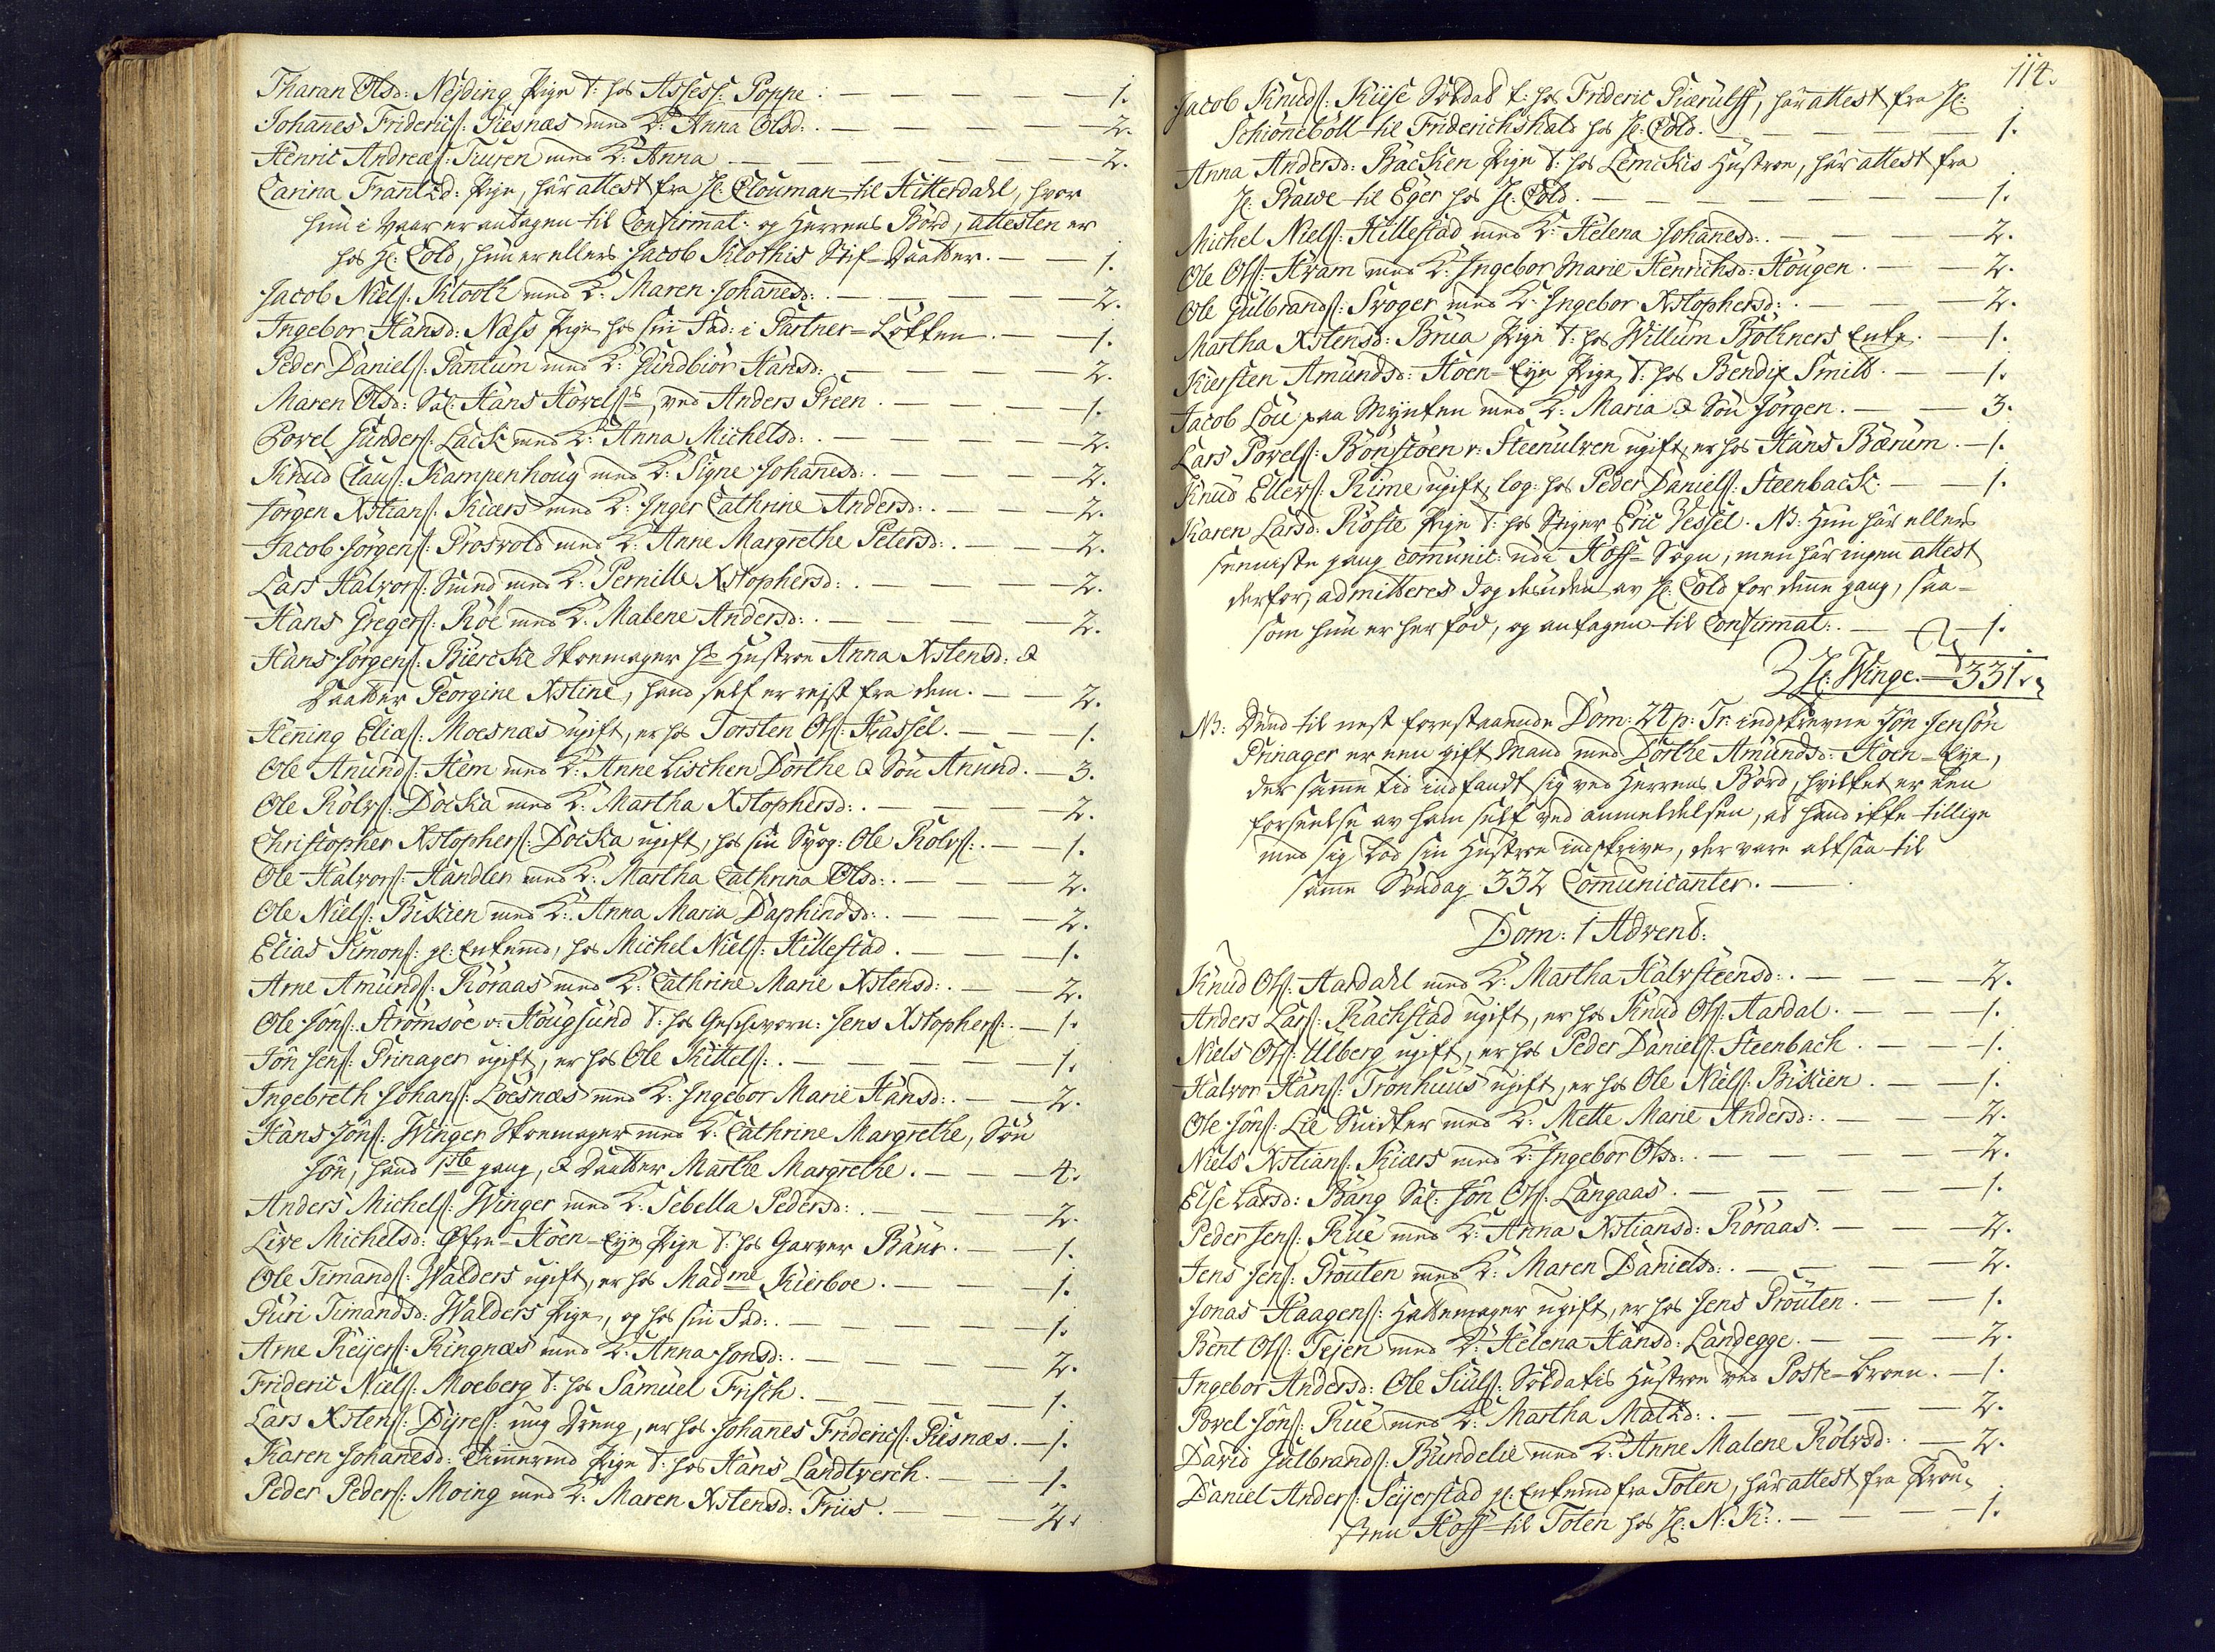 Tharan Olsd: Neyding Pige t: hos Assess: Poppe. — 1.
Johanes Friderics: Piesnæs med K: Anna Olsd:. — 2.
Henric Andreæs: Turen med K: Anna. — 2.
Carina Frantzd: Pige, har attest fra H: Clouman til Hitterdahl, hvor
hun i Vaar er antagen til Confirmat: og Herrens Bord, attesten er
hos H: Cold, hun er ellers Jacob Klothis Stif-Daatter. — 1.
Jacob Niels: Klooth med K: Maren Johanesd:. — 2.
Ingebor Hansd: Næss Pige hos sin Fad: i Gartner-Løkken. — 1.
Peder Daniels: Pantum med K: Gundbiør Hansd:. — 2.
Maren Olsd: Sal: Hans Hovels:, ved Anders Preen. — 1.
Povel Gunders: Lack med K: Anna Michelsd:. — 2.
Knud Claus: Kampenhoug med K: Signe Johanesd:. — 2.
Jørgen Xstians: Kiærs med K: Inger Cathrine Andersd:. — 2.
Jacob Jørgens: Prosvold med K: Anne Margrethe Petersd:. — 2.
Lars Halvors: Smed med K: Pernille Xstophersd:. — 2.
Hans Gregers: Røe med K: Malene Andersd:. — 2.
Hans Jørgens: Biercke Skoemager hs Hustroe Anna Xstensd: &
Daatter Georgine Xstine, hand self er rejst fra dem. — 2.
Hening Elias: Moesnæs ugift, er hos Torsten Ols: Hassel. — 1.
Ole Anunds: Hem med K: Anne Lischen Dorthe & Søn Anund. — 3.
Ole Rolvs: Docka med K: Martha Xstophersd:. — 2.
Christopher Xstophers: Docka ugift, hos sin Svog: Ole Rolvs:. — 1.
Ole Halvors: Handler med K: Martha Cathrina Olsd:. — 2.
Ole Niels: Biskien med K: Anna Maria Daphindsd:. — 2.
Elias Simons: gl: Enkemd, hos Michel Niels: Hillestad. — 1.
Arne Amunds: Røraas med K: Cathrine Marie Xstensd:. — 2.
Ole Jons: Strømsøe v: Hougsund t: hos Geschworn: Jens Xstophers:. — 1.
Jon Jens: Prinager ugift, er hos Ole Kittels:. — 1.
Ingebreth Johans: Loesnæs med K: Ingebor Marie Hansd:. — 2.
Hans Jons: Winger Skoemager med K: Cathrine Margrethe, Søn
Jon, hand 1ste gang, & Daatter Marthe Margrethe. — 4.
Anders Michels: Winger med K: Sebella Pedersd:. — 2.
Live Michelsd: Øfre-Hoen-Eye Pige t: hos Garver Baur. — 1.
Ole Timands: Walders ugift, er hos Madme Kierboe. — 1.
Guri Timandsd: Walders Pige, og hos sin Fad:. — 1.
Arne Reyers: Ringnæs med K: Anna Jonsd:. — 2.
Frideric Niels: Moeberg t: hos Samuel Frisch. — 1.
Lars Xstens: Dyres: ung Dreng, er hos Johanes Friderics: Piesnæs. — 1.
Karen Johanesd: Timermd Pige t: hos Hans Landtverch. — 1.
Peder Peders: Moing med K: Maren Xstensd: Friis. — 2.
114.
Jacob Knuds: Kiise Soldat t: hos Frideric Kierulff, har attest fra H:
Schiøneboll til Friderichshald hos H: Cold. — 1.
Anna Andersd: Backen Pige t: hos Lemickis Hustroe, har attest fra
H: Prawe til Eger hos H: Cold. — 1.
Michel Niels: Hillestad med K: Helena Johanesd:. — 2.
Ole Ols: Hvam med K: Ingebor Marie Henrichsd: Hougen. — 2.
Ole Gulbrands: Svoger med K: Ingebor Xstophersd:. — 2.
Martha Xstensd: Brua Pige t: hos Willum Bøthners Enke. — 1.
Kiersten Amundsd: Hoen-Eye Pige t: hos Bendix Smitt. — 1.
Jacob Lou paa Mynten med K: Maria & Søn Jørgen. — 3.
Lars Povels: Bonstøen v: Steenulven ugift, er hos Hans Bærum. — 1.
Knud Ellevs: Rime ugift, log: hos Peder Daniels: Steenback. — 1.
Karen Larsd: Koste Pige t: hos Stiger Eric Vessel. NB: Hun har ellers
senniste gang comunic: udi Hoff-Sogn, men har ingen attest
derfor, admitteres dog desuden av H: Cold for denne gang, saa-
som hun er her fød, og antagen til Confirmat:. — 1.
H: Winge. — 331.
NB: Dend til nest forestaaende Dom: 24 p: Tr: indskrevne Jon Jensøn
Prinager er een gift Mand med Dorthe Amundsd: Hoen-Eye,
der samme tid indfandt sig ved Herrens Bord, hvilket er een
forseelse av ham self ved anmeldelsen, at hand ikke tillige
med sig lod sin Hustroe indskrive, der vare altsaa til
samme Søndag 332 Comunicanter. —
Dom: 1 Advent:
Knud Ols: Aardahl med K: Martha Halvsteensd:. — 2.
Anders Lars: Rachstad ugift, er hos Knud Ols: Aardal. — 1.
Niels Ols: Ulberg ugift, er hos Peder Daniels: Steenbach. — 1.
Halvor Hans: Tronhuus ugift, er hos Ole Niels: Biskien. — 1.
Ole Jons: Lie Snidker med K: Mette Marie Andersd:. — 2.
Niels Xstians: Kiærs med K: Ingebor Olsd:. — 2.
Else Larsd: Bang Sal: Jon Ols: Langaas. — 1.
Peder Jens: Rue med K: Anna Xstiansd: Røraas. — 2.
Jens Jens: Prouten med K: Maren Danielsd:. — 2.
Jonas Haagens: Hattemager ugift, er hos Jens Prouten. — 1.
Bent Ols: Tejen med K: Helena Hansd: Landegge. — 2.
Ingebor Andersd: Ole Siuls: Soldatis Hustroe ved Poste-Broen. — 1.
Povel Jons: Rue med K: Martha Matzd:. — 2.
David Gulbrands: Bundelie med K: Anne Malene Rolvsd:. — 2.
Daniel Anders: Seyerstad gl: Enkemd fra Toten, har attest fra Prou-
sten Hoff til Toten hos H: N: K:. — 1.